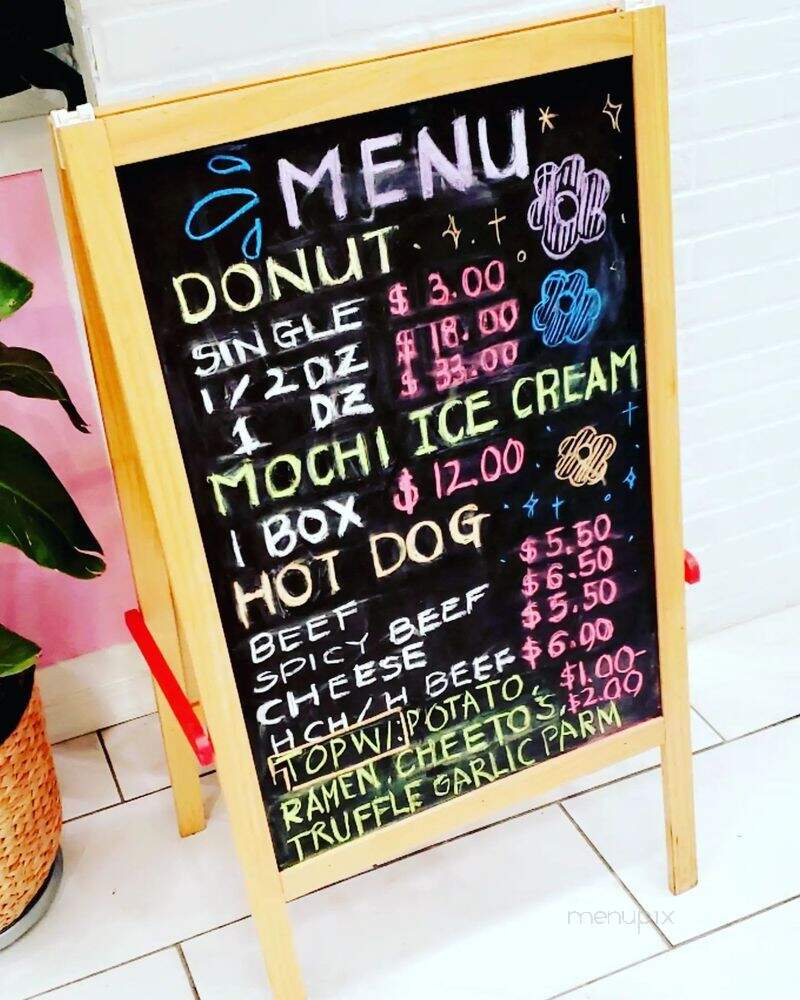 MENU
DONUT
SINGLE $ 3.00
1/2 DZ $ 18.00
1 DZ $ 33.00
MOCHI ICE CREAM
1 BOX $ 12.00
HOT DOG
BEEF $5.50
SPICY BEEF $6.50
CHEESE $5.50
HCH/H BEEF $6.00
TOPW/: POTATO, $1.00-
RAMEN, CHEETO'S, $2.00
TRUFFLE GARLIC PARM
menupix